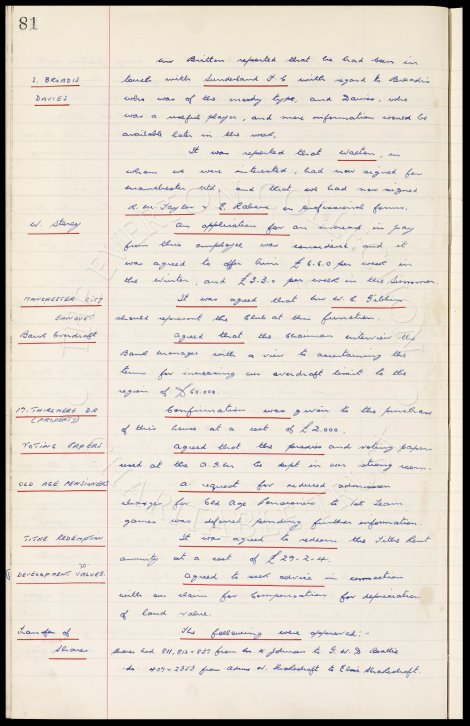 81
Mr Britton reported that he had been in
I. BROADIS touch with Sunderland F.C with regard to Broadis
DAVIES who was of the moody type, and Davies, who
was a useful player, and more information would be
available later in the week.
It was reported that in
whom we were interested, had now signed for
Manchester Utd, and that we had now signed
Taylor & E. on professional forms.
W. Storey An application for an increase in pay
from this employee was considered, and it
was agreed to offer him £6.6.0 per week in
the Winter, and per week in the Summer.
MANCHESTER CITY It was agreed that Mr W. C.
BANQUET should represent the Club at this function.
Bank Overdraft Agreed that the Chairman interview the
Bank Manager with a view to ascertaining the
terms for increasing our overdraft limit to the
region of £60.000.
17. THIRLMERE DR Confirmation was given to the purchase
(PROPERTY) of this house at a cost of £2.000.
VOTING PAPERS Agreed that the proxies and voting papers
used at the A.G.M. be kept in our strong room.
OLD AGE PENSIONERS A request for reduced admission
charges for Old Age Pensioners to 1st Team
games was deferred pending further information.
TITHE REDEMPTION It was agreed to redeem the Tithe Rent
annuity at a cost of £29-2-4.
DEVELOPMENT VALUES. Agreed to seek advice in connection
with our claim for Compensation for depreciation
of land value.
Transfer of The following were approved:-
Shares Shares Nos 811, 812 & 837 from K Johnson to Beattie
-do- 407 & 2353 from to Elsie